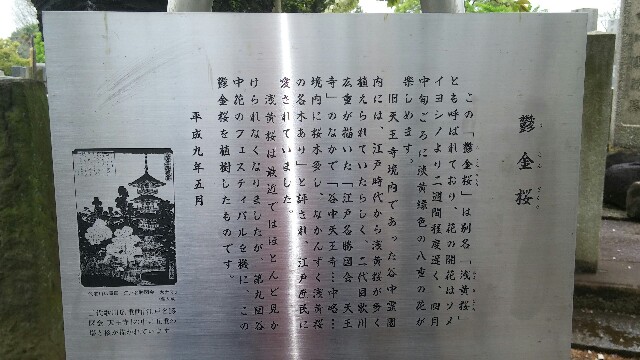 鬱金桜
うこんざくら
この「鬱金桜」は別名「浅黄桜」
とも呼ばれており、花の開花はソメ
イヨシノより二週間程度遅く、四月
中旬ごろに淡黄緑色の八重の花が
楽しめます。
旧天王寺境内であった谷中霊園
内には、江戸時代から浅黄桜が多く
植えられていたらしく、二代目歌川
広重が描いた「江戸名勝図会 天王
寺」のなかで「谷中天王寺…中略…
境内に桜木多し、なかんずく浅黄桜
の名木あり」と評され、江戸庶民に
愛されていました。
浅黄桜は最近ではほとんど見か
けられなくなりましたが、第九回谷
中花のフェスティバルを機に、この
鬱金桜を植樹したものです。
平成九年五月
二代歌川広重画江戸名勝
図会「天王寺」の中に五重の
塔と桜が描かれています